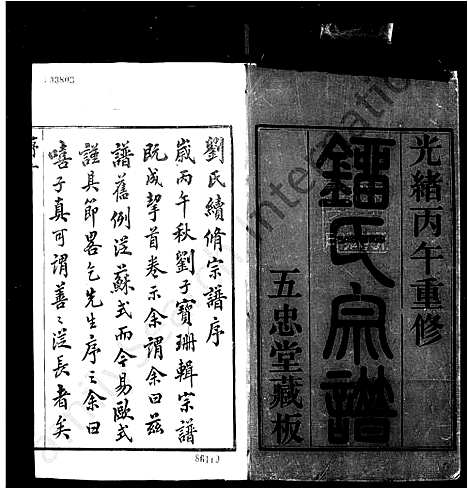 光緒丙午重修
鐂氏宗譜
五忠堂藏板
劉氏續脩宗譜序
歲丙午秋劉子寶珊輯宗譜
既成挈首卷示余謂余曰茲
譜舊例從蘇式而今易歐式
謹具節畧乞先生序之余曰
嘻子真可謂善〻從長者矣